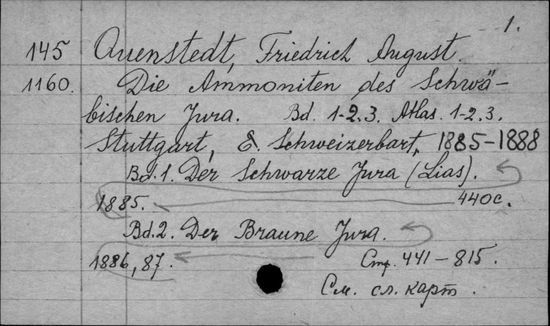 1.
145 Quenstedt, Friedrich August.
1160. Die Ammoniten des Schwä-
bischen Jura. Bd. 1-2.3. Atlas. 1-2.3.
Stuttgart, E. Schweizerbart, 1885-1888
Bd.1. Der Schwarze Jura (Lias).
1885. 440с.
Bd.2. Der Braune Jura.
1886,87. Стр. 441-815.
См. сл. карт.